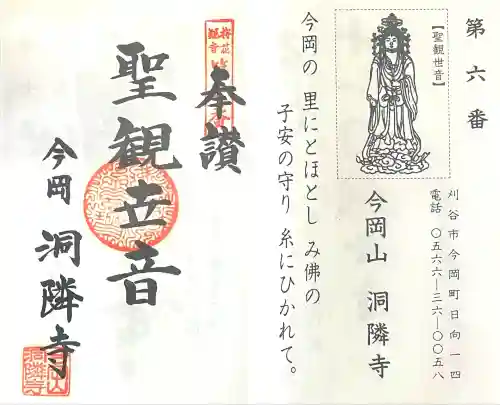 第六番
【聖観世音】
刈谷市今岡町日向一四
電話 〇五六六―三六―〇〇五八
今岡山 洞隣寺
今岡の 里にとほとし み佛の
子安の守り 糸にひかれて。
奉讃
聖観音
今岡 洞隣寺